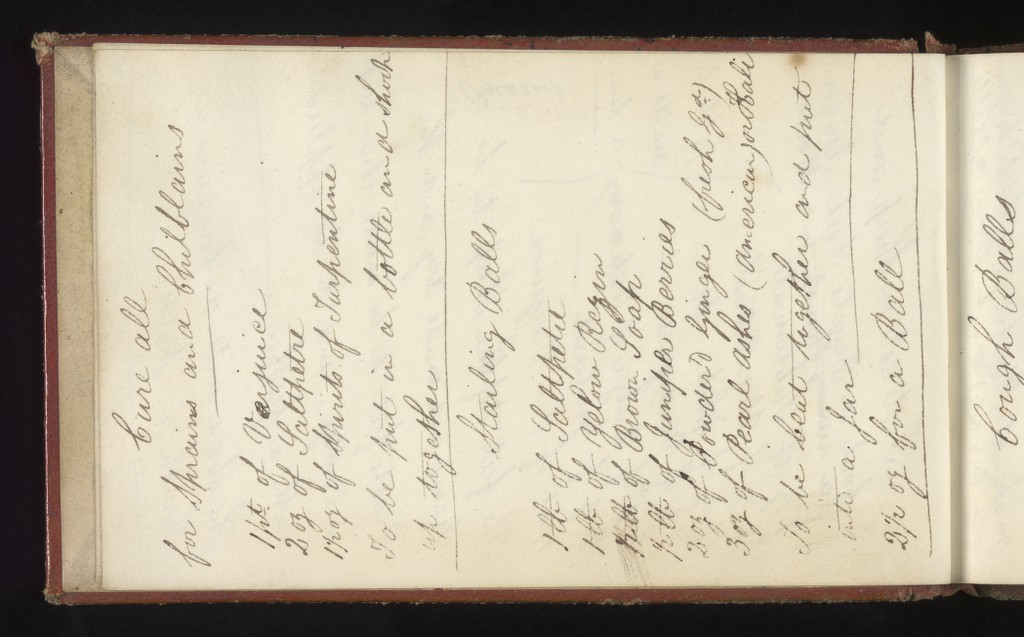 Cure all
for Sprains and Chilblains
1 pt of Verjuice
2 oz of Saltpetre
1½ oz of Spirits of Turpentine
To be put in a bottle and shook
up together
Staling Balls
1 lb of Saltpetre
1 lb of Yelow Rezin
½ lb of Brown Soap
½ lb of Juniper Berries
2 oz of Powderd Ginger (fresh Gd)
3 oz of Pearl ashes (american) or Kali
To be beat together and put
into a Jar
2½ oz for a Ball
Cough Balls